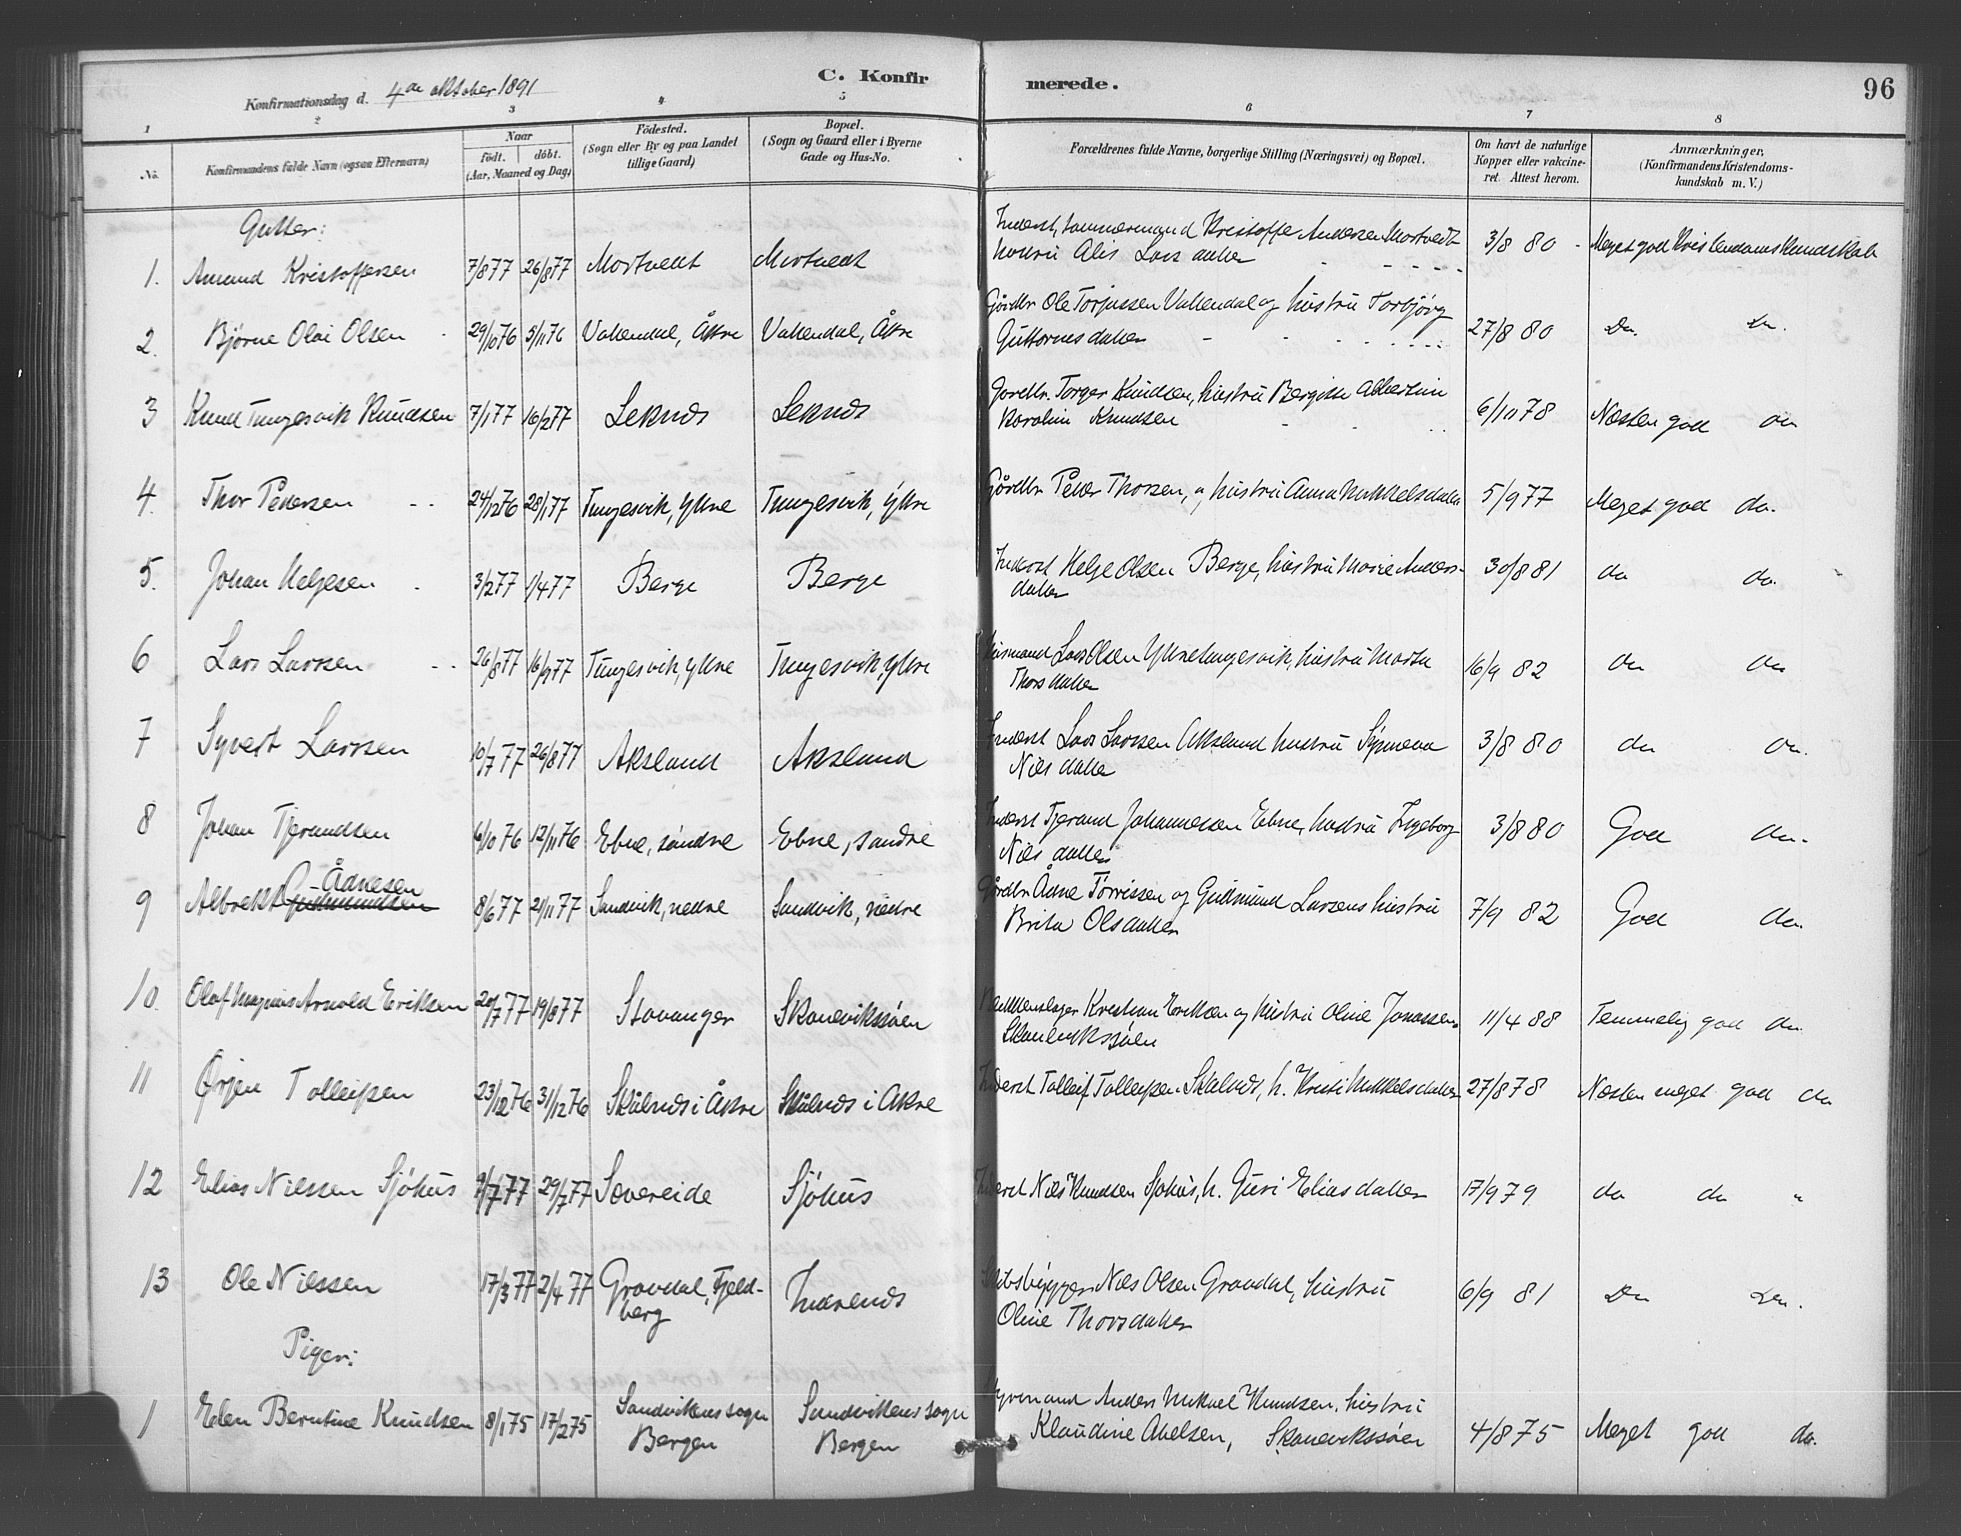 C. Konfirmerede.
96
Konfirmationsdag d. 4de oktober 1891
1 2 3 4 5 6 7 8
No. Konfirmandens fulde Navn (ogsaa Efternavn) Naar födt. döbt. (Aar, Maaned og Dag) Födested. (Sogn eller By og paa Landet tillige Gaard) Bopæl. (Sogn og Gaard eller i Byerne Gade og Hus-No. Forældrenes fulde Navne, borgerlige Stilling (Næringsvei) og Bopæl. Om havt de naturlige Kopper eller vakcineret. Attest herom. Anmærkninger, (Konfirmandens Kristendomskundskab m. V.)
Gutter:
1. Amund Kristoffersen 7/8 77 26/8 77 Mortvedt Mortvedt Inderst, tømmermand Kristoffer Andersen Mortvedt
hustru Alis Larsdatter 3/8 80 - Meget god Kristendomskundskab
2. Bjørne Olai Olsen 29/10 76 5/11 76 Vakendal, Åkre Vakendal, Åkre Gårdbr Ole Torjussen Vakendal og hustru Torbjørg
Guttormsdatter 27/8 80 Do. Do.
3 Knud Tungesvik Knudsen 7/1 77 16/2 77 Leknes Leknes Gårdbr. Torger Knudsen, hustru Bergitte Albertine
Karoline Knudsen 6/11 78 Næsten god do
4. Thor Pedersen 24/12 76 28/1 77 Tungesvik, ytre Tungesvik, ytre Gårdbr Peder Thorsen, og hustru Anna Mikkelsdatter 5/9 77 Meget god do.
5. Johan Helgesen 3/2 77 1/4 77 Berge Berge Inderst Helge Olsen Berge, hustru Marie Anders-
datter 30/8 81 do do.
6 Lars Larsen 26/8 77 16/9 77 Tungesvik, ytre Tungesvik, ytre Husmand Lars Olsen Ytre tungesvik, hustru Marta
Thorsdatter 16/9 82 do do
7 Syvert Larsen 10/7 77 26/8 77 Aksland Aksland Inderst Lars Larsen Aksland hustru Synneva
Nilsdatter 3/8 80 do do.
8 Johan Tjerandsen 6/10 76 12/11 76 Ebne, søndre Ebne, søndre Inderst Tjerand Johannessen Ebne, hustru Ingeborg
Nilsdatter 3/8 80 God do.
9 Albrekt Gudmundsen Ådnesen 8/6 77 21/11 77 Sandvik, nedre Sandvik, nedre Gårdbr Ådne Tørrissen og Gudmund Larsens hustru
Brita Olsdatter 7/9 82 God do.
10. Olaf Magnus Arnold Eriksen 20/7 77 19/8 77 Stavanger Skonevikssøen Kristian Eriksen og hustru Oline Jonassen
Skonevikssøen 11/4 88 Temmelig god do.
11 Ørjen Tolleifsen 23/12 76 31/12 76 Skålnes i Åkre Skålnes i Åkre Inderst Tolleif Tolleifsen Skålnes, h. Kristi Mikkelsdatter 27/8 78 Næsten meget god do
12 Elias Nilssen Sjøhus 9/7 77 29/7 77 Sævereide Sjøhus Inderst Nils Knudsen Sjøhus, h. Guri Eliasdatter 17/9 79 do do "
13 Ole Nilssen 17/3 77 2/4 77 Gravdal, Fjeld-
berg Indrenes Skibsbygger Nils Olsen Gravdal, hustru
Oline Thorsdatter 6/9 81 Do do.
Piger:
1 Elen Berntine Knudsen 8/1 75 17/2 75 Sandvikens sogn
Bergen Sandvikens sogn
Bergen Styrmand Anders Mikael Knudsen, hustru
Klaudine Abelsen, Skonevikssøen 4/8 75 Meget god do.